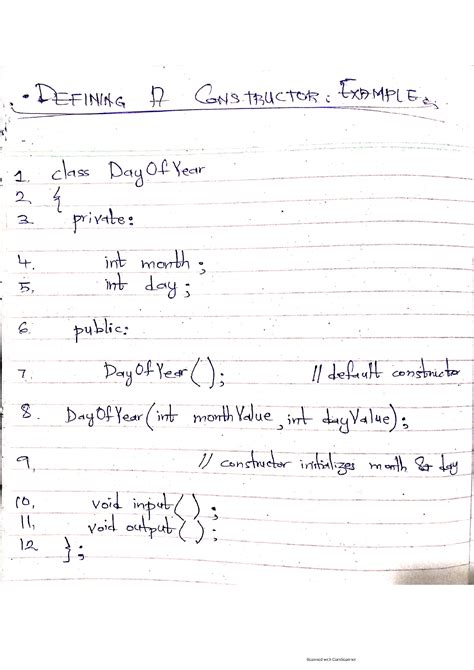 DEFINING A CONSTRUCTOR: EXAMPLE
1. class DayOfYear
2. {
3. private:
4. int month;
5. int day;
6. public:
7. DayOfYear(); // default constructor
8. DayOfYear(int monthValue, int dayValue);
9. // constructor initializes month & day
10, void input();
11, void output();
12 };
Scanned with CamScanner